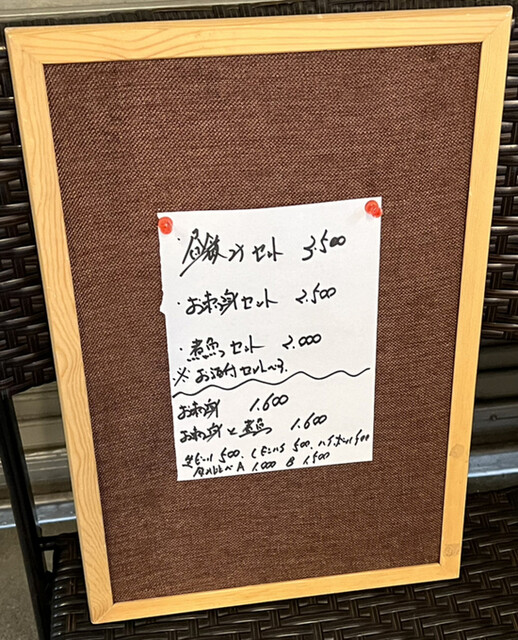 ・昼飲みセット 3.500
・お刺身セット 2.500
・煮魚セット 2.000
※お酒付セットです。
お刺身 1.600
お刺身と煮魚 1.600
生ビール 500、レモンハイ 500、ハイボール 500
A 1.000 B 1.500